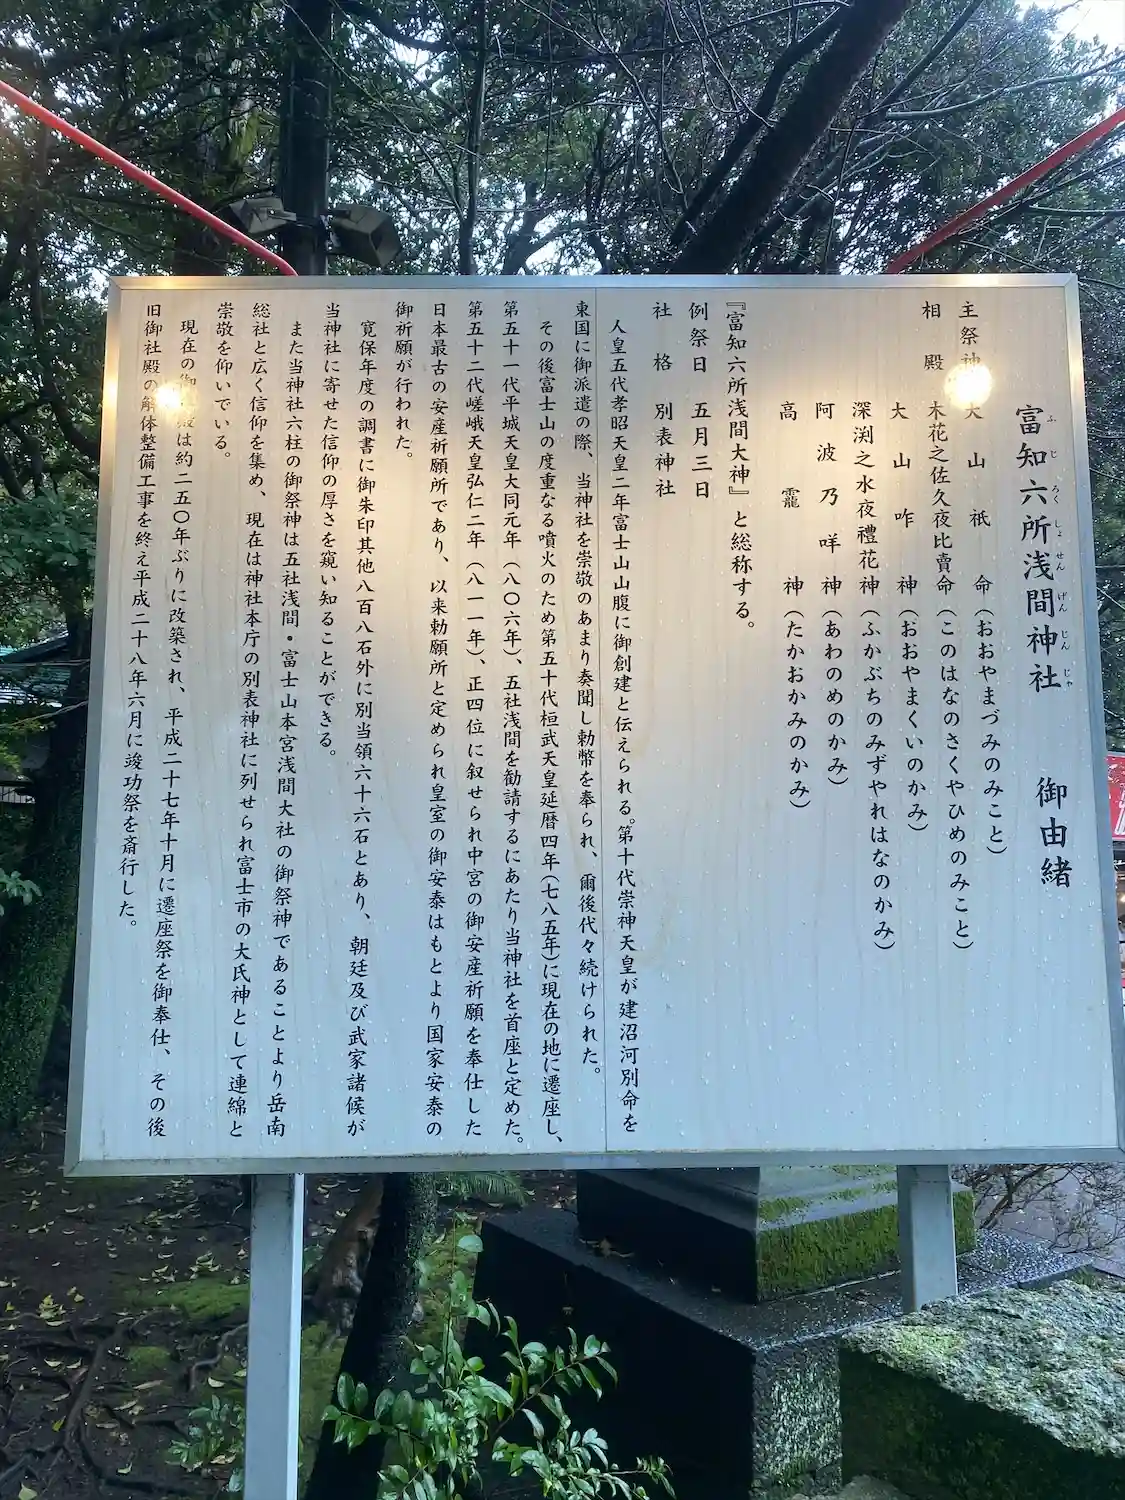 富知六所浅間神社 御由緒
ふじろくしょせんげんじんじゃ
主祭神 大山祇命(おおやまづみのみこと)
相殿 木花之佐久夜比賣命(このはなのさくやひめのみこと)
大山咋神(おおやまくいのかみ)
深渕之水夜禮花神(ふかぶちのみずやれはなのかみ)
阿波乃咩神(あわのめのかみ)
高龗神(たかおかみのかみ)
『富知六所浅間大神』と総称する。
例祭日 五月三日
社格 別表神社
人皇五代孝昭天皇二年富士山山腹に御創建と伝えられる。第十代崇神天皇が建沼河別命を
東国に御派遣の際、当神社を崇敬のあまり奏聞し勅幣を奉られ、爾後代々続けられた。
その後富士山の度重なる噴火のため第五十代桓武天皇延暦四年(七八五年)に現在の地に遷座し、
第五十一代平城天皇大同元年(八〇六年)、五社浅間を勧請するにあたり当神社を首座と定めた。
第五十二代嵯峨天皇弘仁二年(八一一年)、正四位に叙せられ中宮の御安産祈願を奉仕した
日本最古の安産祈願所であり、以来勅願所と定められ皇室の御安泰はもとより国家安泰の
御祈願が行われた。
寛保年度の調書に御朱印其他八百八石外に別当領六十六石とあり、朝廷及び武家諸候が
当神社に寄せた信仰の厚さを窺い知ることができる。
また当神社六柱の御祭神は五社浅間・富士山本宮浅間大社の御祭神であることより岳南
総社と広く信仰を集め、現在は神社本庁の別表神社に列せられ富士市の大氏神として連綿と
崇敬を仰いでいる。
現在の御殿は約二五〇年ぶりに改築され、平成二十七年十月に遷座祭を御奉仕、その後
旧御社殿の解体整備工事を終え平成二十八年六月に竣功祭を斎行した。